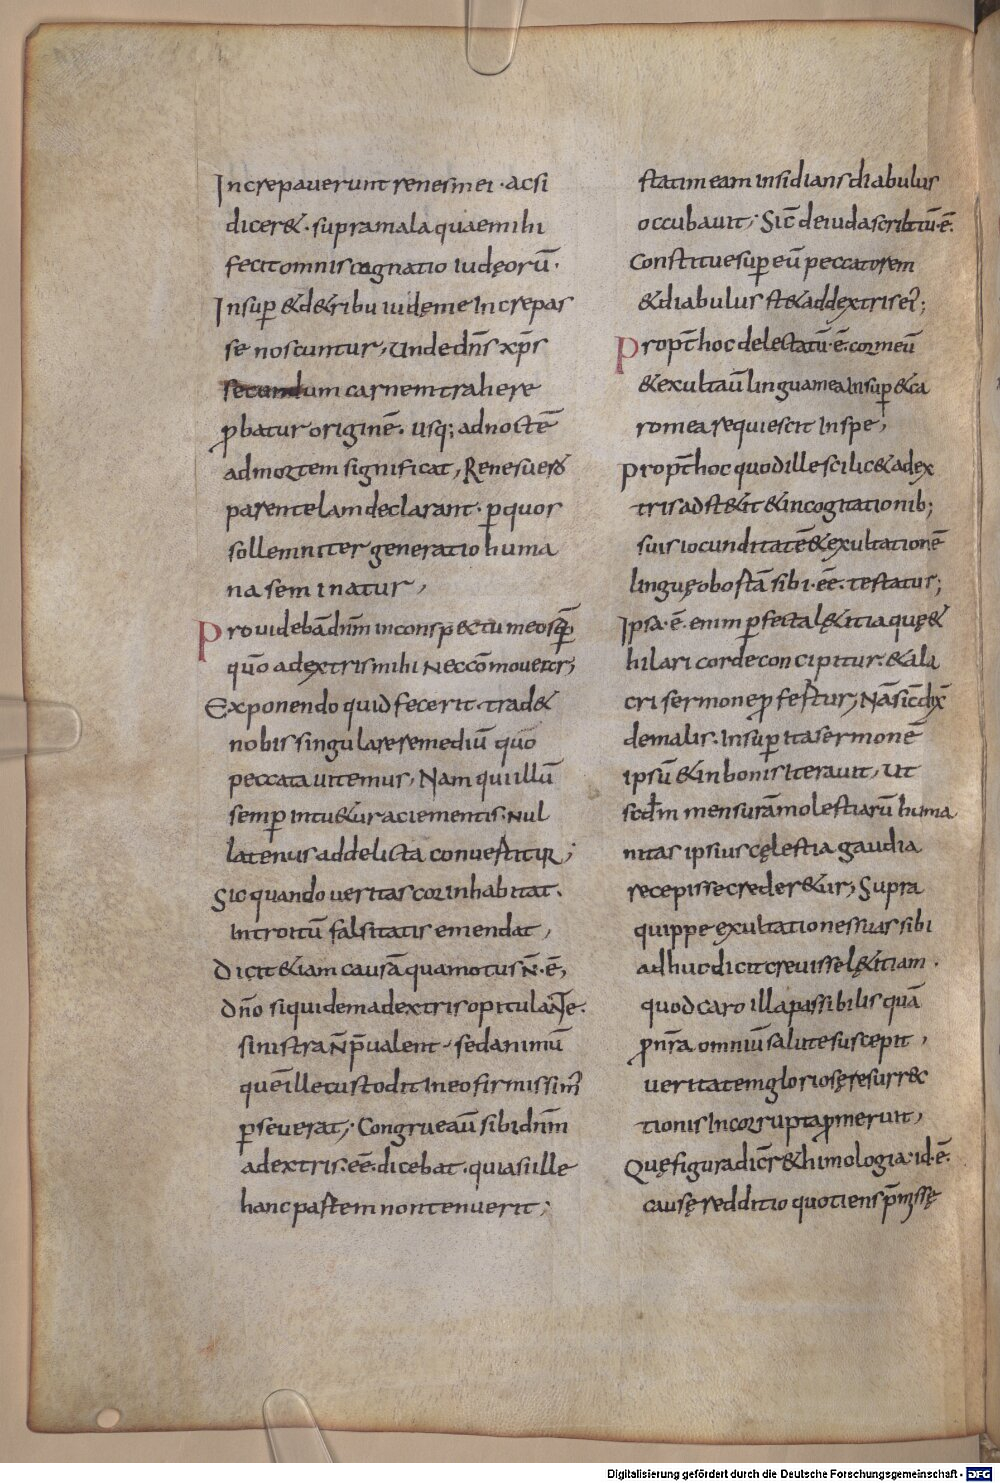 Increpaverunt renesmei · acsi
dicer& · supramala quaemihi
fecit omnis cognatio iudęorū ·
Insup̄ &de&ribu iudęme Increpas
se noscuntur, Unde dn̄s xp̄s
secundum carnem trahere
ꝓbatur originē. Usq; ad noctē
admortem significat, Renes uero
parentelam declarant · ꝑquos
sollemniter generatio huma
na seminatur,
Providebā dn̄m inconsp&u meo sēp
quō adextris mihi Nec cōmovear;
Exponendo quid fecerit · trad&
nobis singulare remediū quo
peccata vitemus, Nam qui illū
semp̄ intu&ur acie mentis · Nul
latenus addelicta convertitur;
Sic quando veritas cor inhabitat.
Introitū falsitatis emendat,
Dicit &iam causā quamotus n̄ · ē,
Dn̄o siquidem adextris opitulante.
sinistra n̄ p̄valent · sed animū
quē ille custodit In eo firmissim'
ꝑseverat; Congrue aū sibi dn̄m
adextris · eē · dicebat · quia si ille
hanc partem non tenuerit;
statim eam insidians diabulus
occubavit; Sic̄ de iuda scribtū · ē.
Constitue sup̄ eū peccatorem
&diabulus st& addextris ei';
Propt̄ hoc delectatū · ē · cor meū
&exultaū lingua mea Insup̄ &ca
ro mea requiescit In spe,
Propt̄ hoc quod ille scilic& adex
tris adst&it &incogitationib;
suis iocunditatē &exultationē
linguę obortā sibi · eē · testatur;
Ipsa · ē · enim ꝑfecta l&itia quę&
hilari corde concipitur · &ala
cri sermone ꝓfertur; Nā sic̄ dix̄
de malis · Insup̄ ita sermonē
ipsū &in bonis Iteravit, Ut
scđm mensurā molestiarū huma
nitas ipsius cęlestia gaudia
recepisse creder&ur; Supra
quippe exultationes suas sibi
adhuc dicit crevisse l&itiam ·
quod caro illa passibilis quā
ꝓ n̄ra omniū salute suscepit,
veritatem gloriosę resurrec
tionis Incorrupta ꝓmeruit,
Quę figura dicr̄ &himologia · id · ē ·
causę redditio quotiens p̄missę